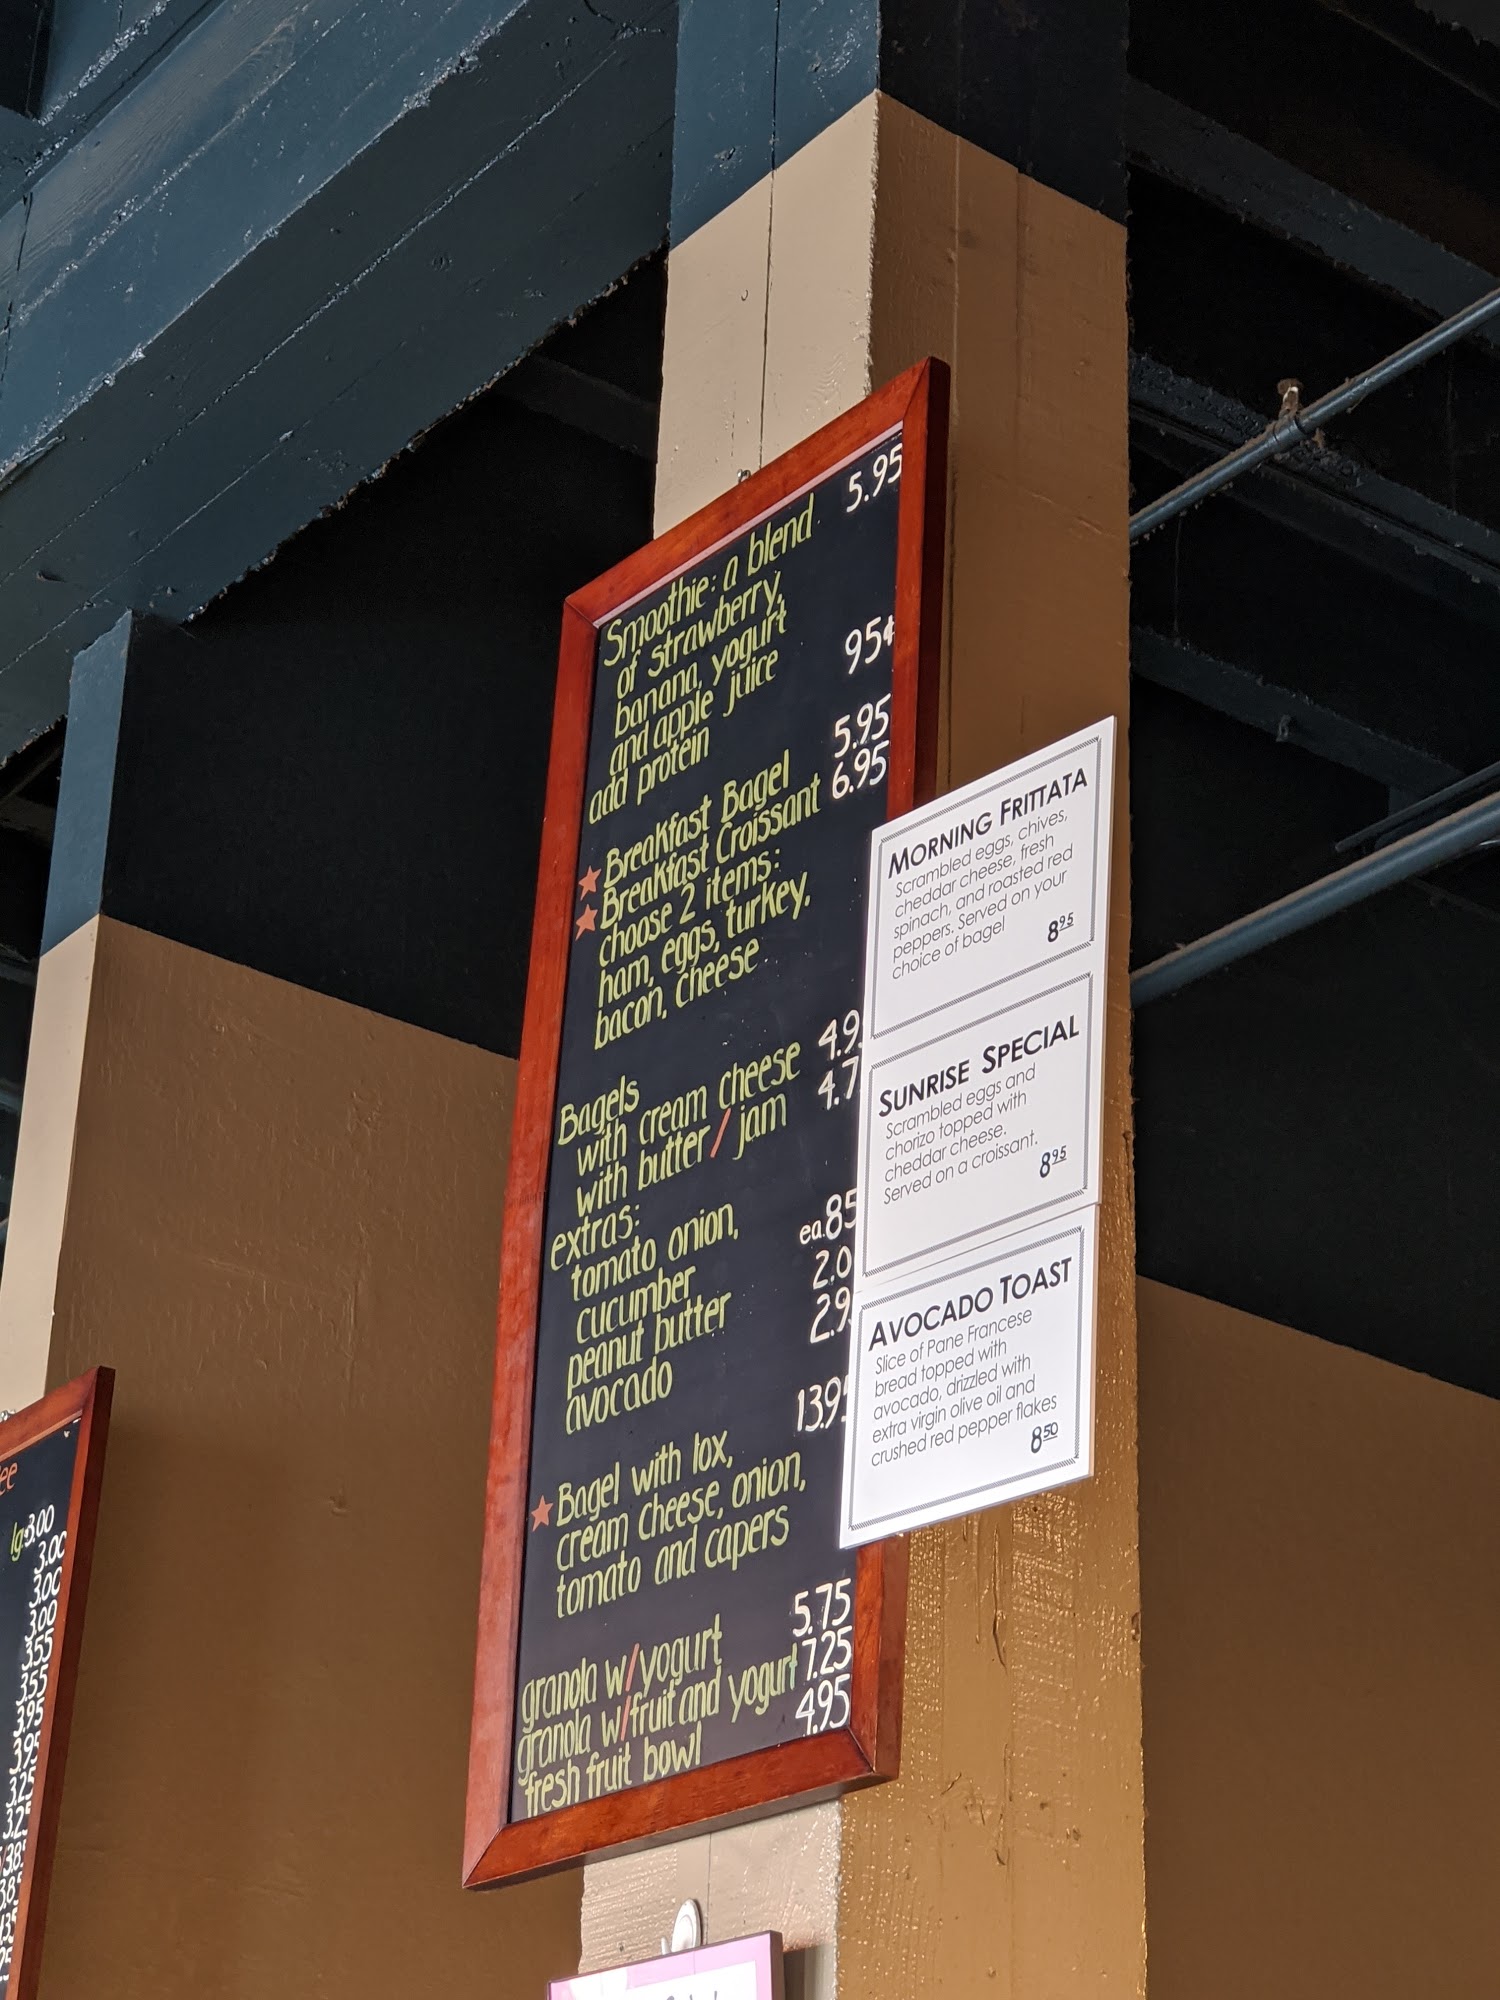 5.95
Smoothie: a blend
of strawberry,
banana, yogurt
and apple juice
add protein 95¢
★Breakfast Bagel 5.95
★Breakfast Croissant 6.95
choose 2 items:
ham, eggs, turkey,
bacon, cheese
Bagels
with cream cheese 4.9
with butter/jam 4.7
extras:
tomato onion, ea.85
cucumber
peanut butter 2.0
avocado 2.9
★Bagel with lox, 13.95
cream cheese, onion,
tomato and capers
granola w/yogurt 5.75
granola w/fruit and yogurt 7.25
fresh fruit bowl 4.95
MORNING FRITTATA
Scrambled eggs, chives,
cheddar cheese, fresh
spinach, and roasted red
peppers. Served on your
choice of bagel 8.95
SUNRISE SPECIAL
Scrambled eggs and
chorizo topped with
cheddar cheese.
Served on a croissant.
8.95
AVOCADO TOAST
Slice of Pane Francese
bread topped with
avocado, drizzled with
extra virgin olive oil and
crushed red pepper flakes
8.50
lg.
3.00
3.00
3.00